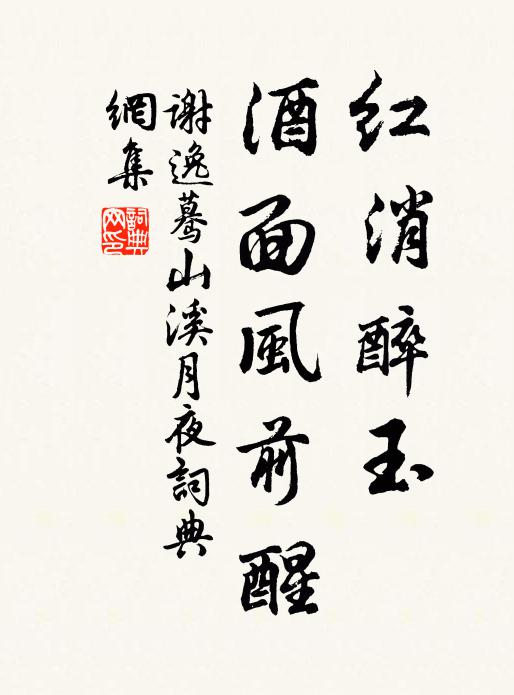 紅消醉玉
酒面風前醒
謝逸驀山溪月夜詞典
網集
詞典
网印